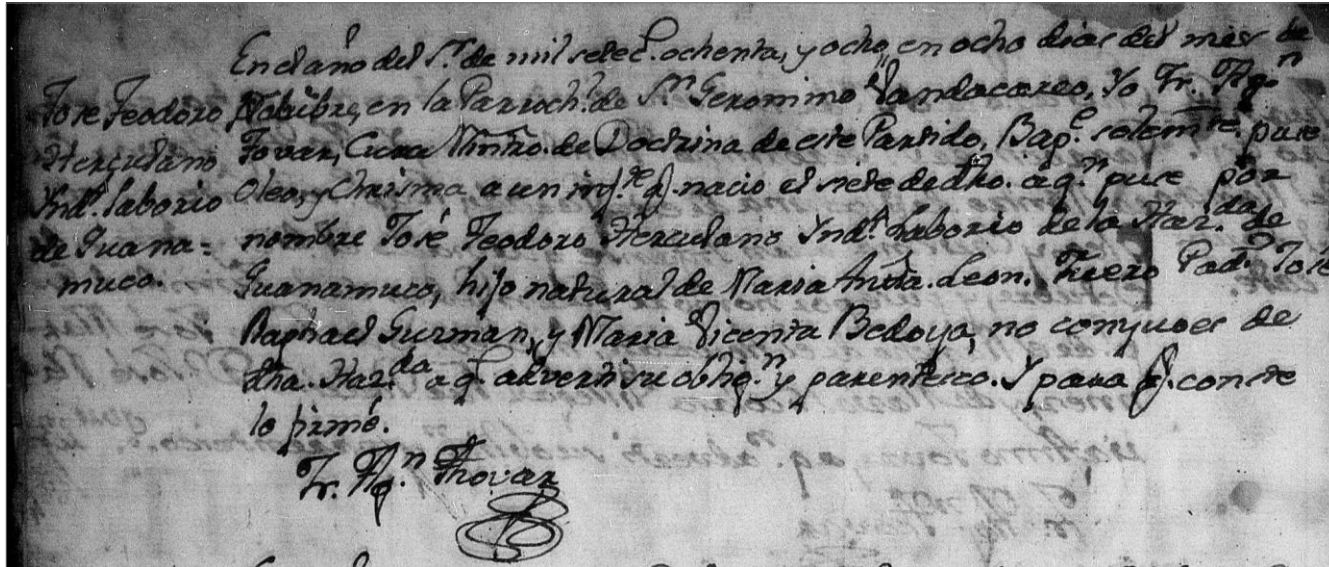 En el año del S.r de mil setec.s ochenta, y ocho, en ocho dias del mes de
Jose Teodoro
Herculano
Ind.o laborio
de Guana=
muco.
8obre, en la Parroch.l de S.n Geronimo Yandacareo, Yo Fr. Ag.n
Tovar, Cura Mintro. de Doctrina de este Partido, Bap.e solemte. puse
Oleo, y Chrisma a un inf.te q. nacio el siete de dho. a q.n puse por
nombre José Teodoro Herculano Ind.o laborio de la Haz.da de
Guanamuco, hijo natural de Maria Anta. Leon. Fuero Pad.s José
Raphael Guzman, y Maria Vicenta Bedoya, no conyuges de
dha. Haz.da a q.s adverti su oblig.n y parentesco. Y para q. conste
lo firmé.
Fr. Ag.n Thovar